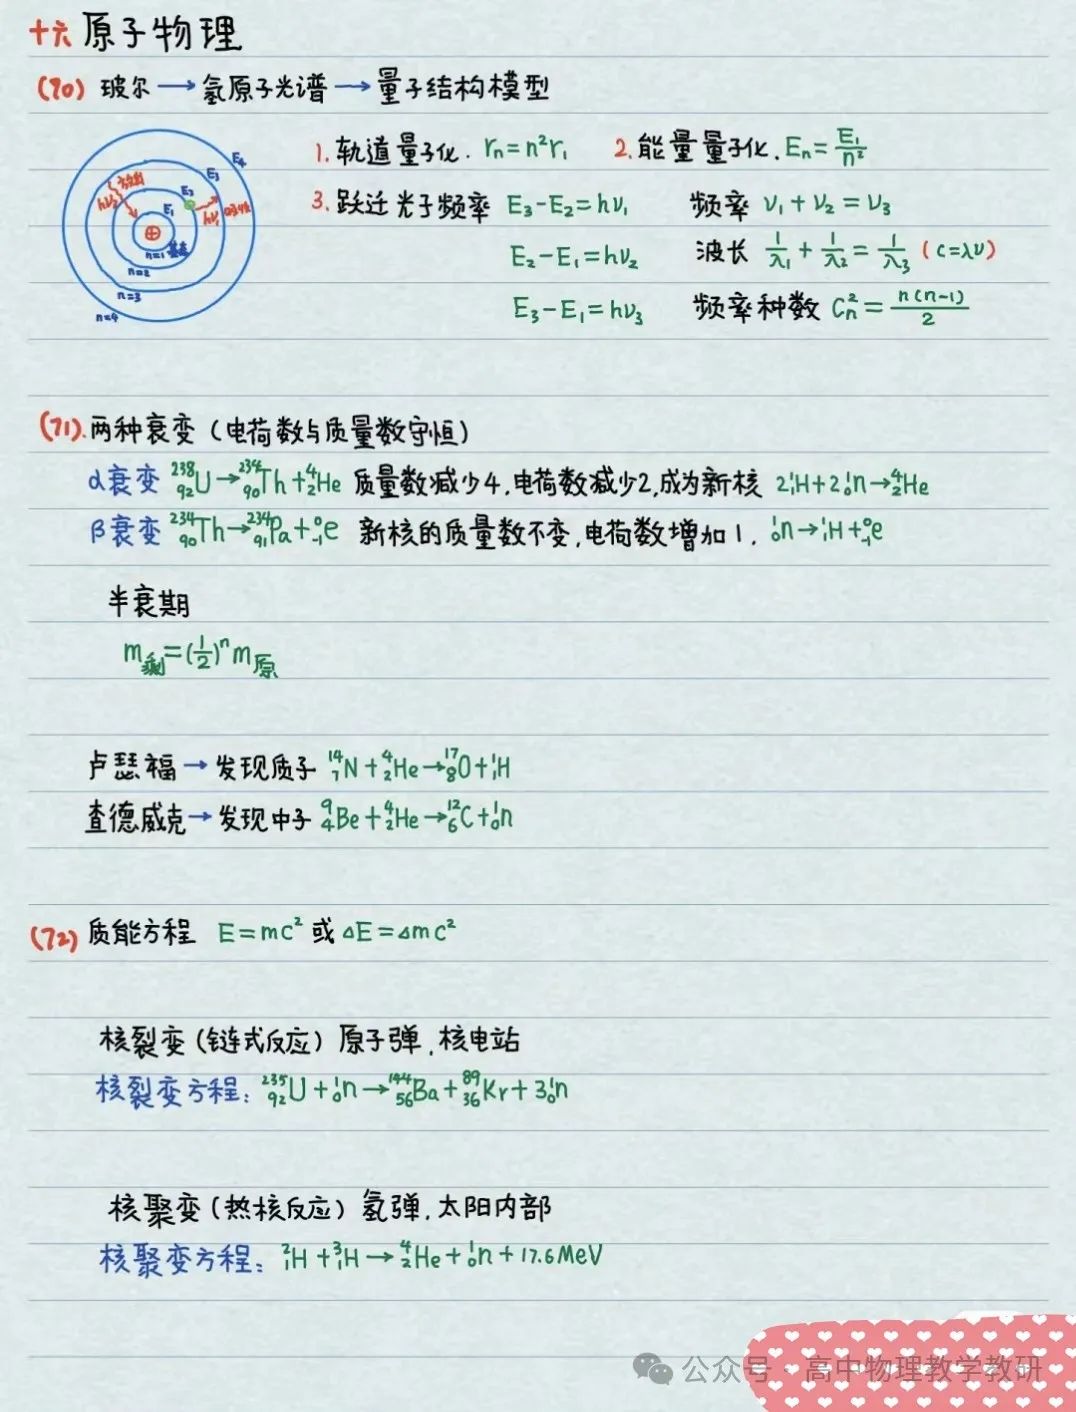 十六 原子物理
(70) 玻尔 → 氢原子光谱 → 量子结构模型
1. 轨道量子化. rₙ=n²r₁ 2. 能量量子化. Eₙ=E₁/n²
3. 跃迁 光子频率 E₃-E₂=hν₁ 频率 ν₁+ν₂=ν₃
E₂-E₁=hν₂ 波长 1/λ₁+1/λ₂=1/λ₃ (c=λν)
E₃-E₁=hν₃ 频率种数 Cₙ²=n(n-1)/2
E₄
E₃
E₂
E₁
放出
hν₂
hν₁ 吸收
n=1 基态
n=2
n=3
n=4
(71). 两种衰变 (电荷数与质量数守恒)
α衰变 ²³⁸₉₂U→²³⁴₉₀Th+⁴₂He 质量数减少4,电荷数减少2,成为新核 2¹₁H+2¹₀n→⁴₂He
β衰变 ²³⁴₉₀Th→²³⁴₉₁Pa+⁰₋₁e 新核的质量数不变,电荷数增加1. ¹₀n→¹₁H+⁰₋₁e
半衰期
m剩=(1/2)ⁿm原
卢瑟福→发现质子 ¹⁴₇N+⁴₂He→¹⁷₈O+¹₁H
查德威克→发现中子 ⁹₄Be+⁴₂He→¹²₆C+¹₀n
(72) 质能方程 E=mc² 或 ΔE=Δmc²
核裂变 (链式反应) 原子弹,核电站
核裂变方程: ²³⁵₉₂U+¹₀n→¹⁴⁴₅₆Ba+⁸⁹₃₆Kr+3¹₀n
核聚变 (热核反应) 氢弹.太阳内部
核聚变方程: ²₁H+³₁H→⁴₂He+¹₀n+17.6MeV
公众号 · 高中物理教学教研